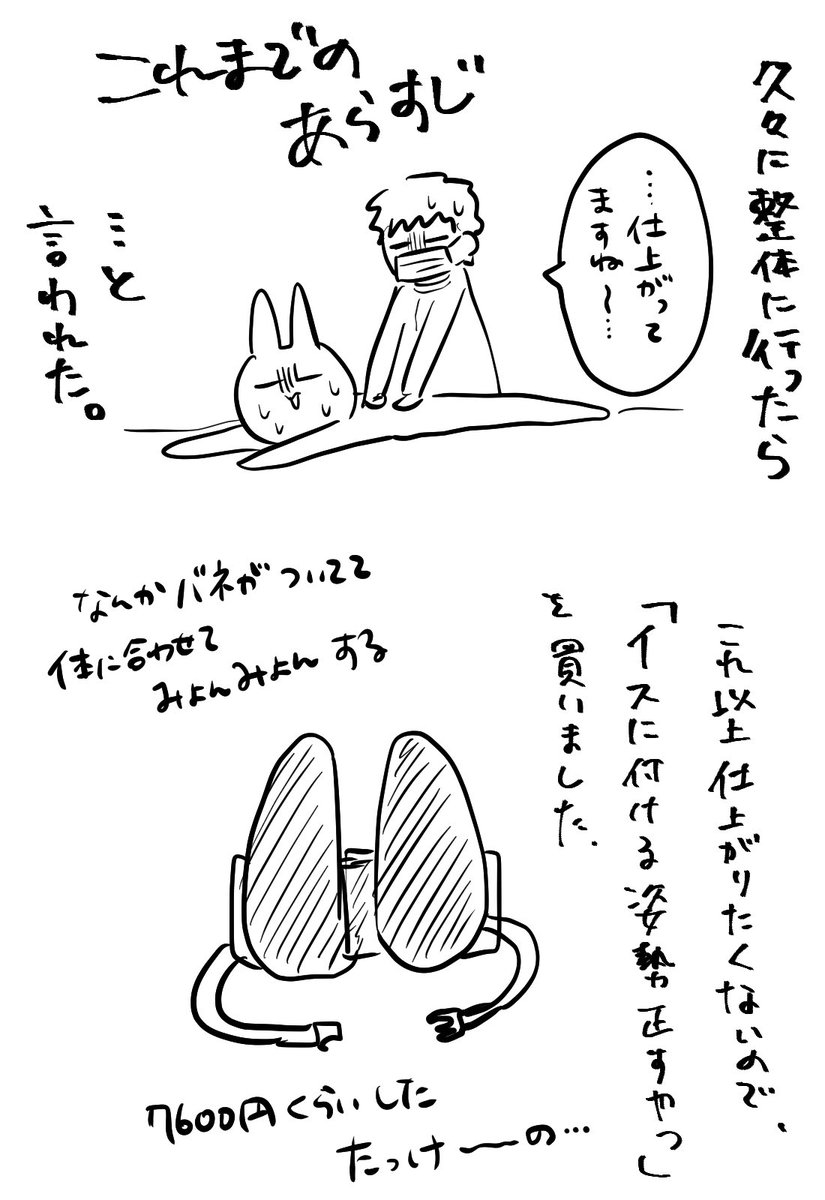 これまでの
あらすじ
久々に整体に行ったら
…仕上がって
ますね〜…
…と
言われた。
これ以上仕上がりたくないので、
「イスに付ける姿勢正すやつ」
を買いました。
なんかバネがついてて
体に合わせて
みよんみよんする
7600円くらいした
たっけーの…